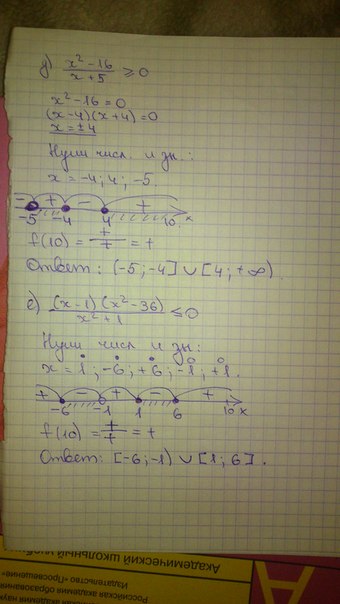 у) (x²-16)/(x+5) ≥ 0
x²-16=0
(x-4)(x+4)=0
x=±4
Нули числ. и зн.:
x = -4; 4; -5.
- + - +
-5 -4 4 10 x
f(10) = +/+ = +
Ответ: (-5; -4] ∪ [4; +∞)
е) (x-1)(x²-36)/(x²+1) ≤ 0
Нули числ. и зн:
x = 1; -6; +6; -1; +1.
+ - + - +
-6 -1 1 6 10 x
f(10) = +/+ = +
Ответ: [-6; -1) ∪ [1; 6].
Академический школьный
Издательство «Просвещение»
Российская академия образования
академия наук